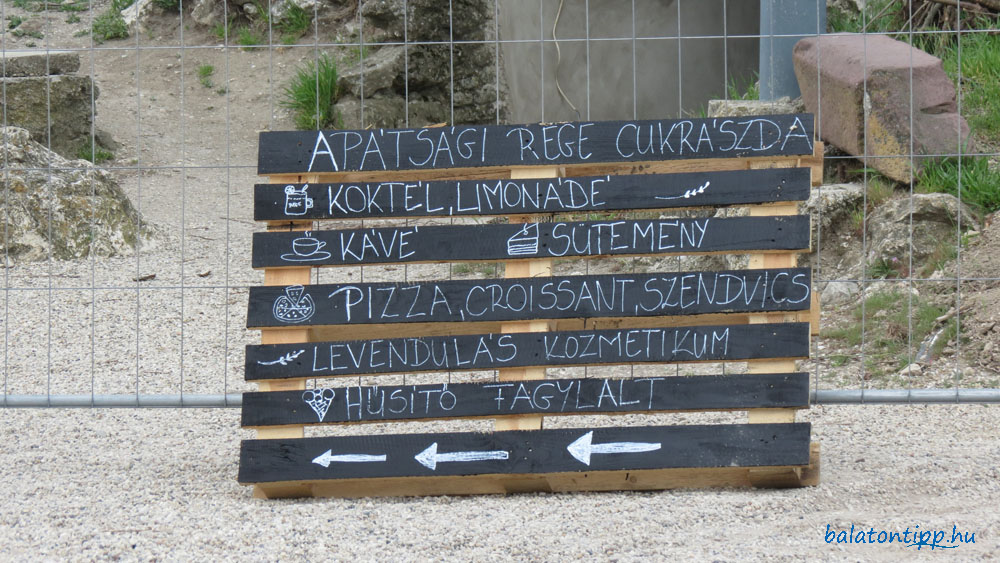 APÁTSÁGI REGE CUKRÁSZDA
KOKTÉL, LIMONÁDÉ
KÁVÉ SÜTEMÉNY
PIZZA, CROISSANT, SZENDVICS
LEVENDULÁS KOZMETIKUM
HŰSÍTŐ FAGYLALT
balatontipp.hu